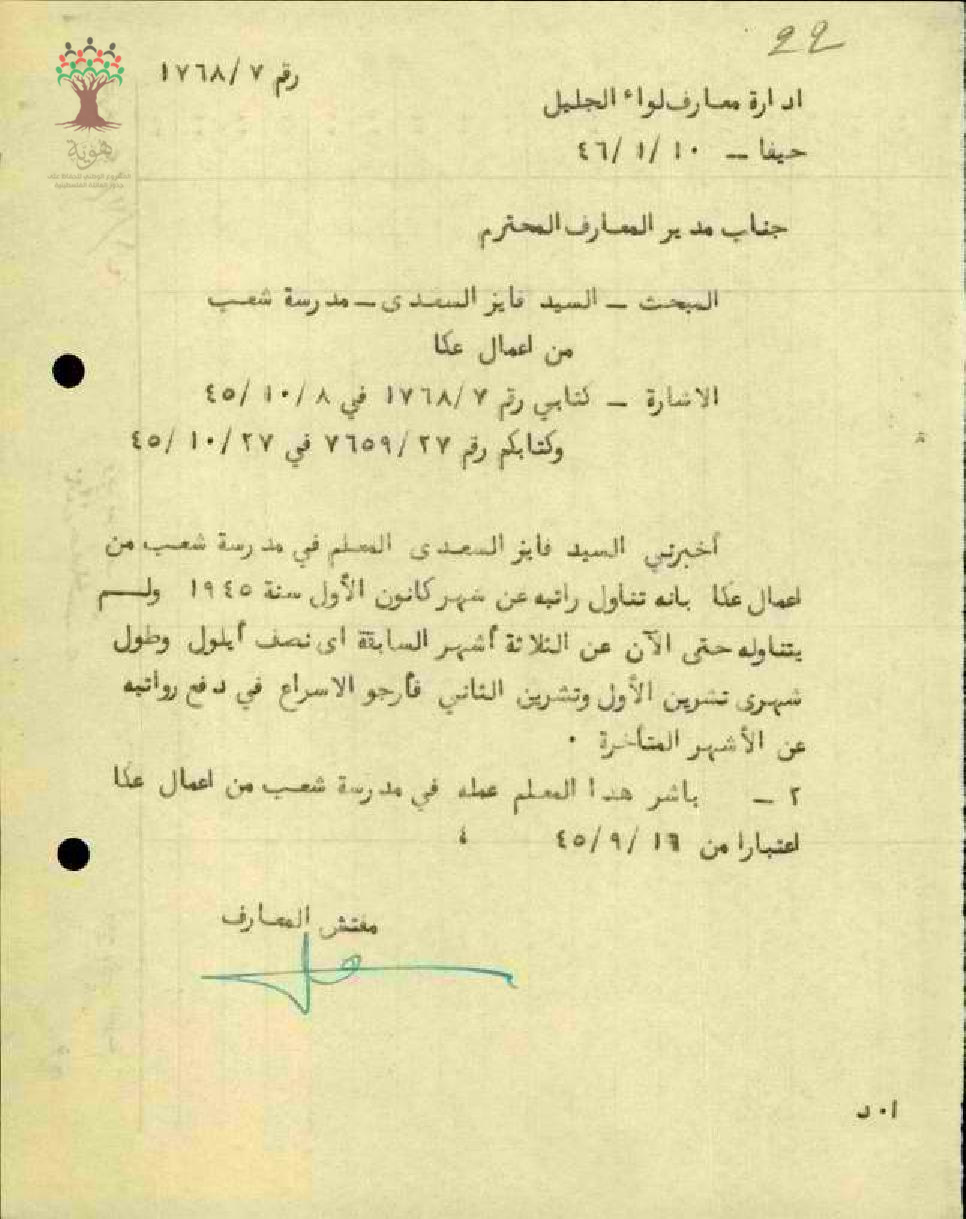 22
رقم ٧ /١٧٦٨
ادارة معارف لواء الجليل
حيفا – ١٠ /١ /٤٦
هوية
جناب مدير المعارف المحترم
المبحث – السيد فايز السعدى – مدرسة شعب
من اعمال عكا
الاشارة – كتابي رقم ٧ /١٧٦٨ في ٨ /١٠ /٤٥
وكتابكم رقم ٢٧ /٧٦٥٩ في ٢٧ /١٠ /٤٥
أخبرني السيد فايز السعدى المعلم في مدرسة شعب من
اعمال عكا بانه تناول راتبه عن شهر كانون الأول سنة ١٩٤٥ ولم
يتناوله حتى الآن عن الثلاثة أشهر السابقة اى نصف أيلول وطول
شهرى تشرين الأول وتشرين الثاني فأرجو الاسراع في دفع رواتبه
عن الأشهر المتأخرة ٠
٢ – باشر هدا المعلم عمله في مدرسة شعب من اعمال عكا
اعتبارا من ١٦ /٩ /٤٥
مفتش المعارف
ا٠ د